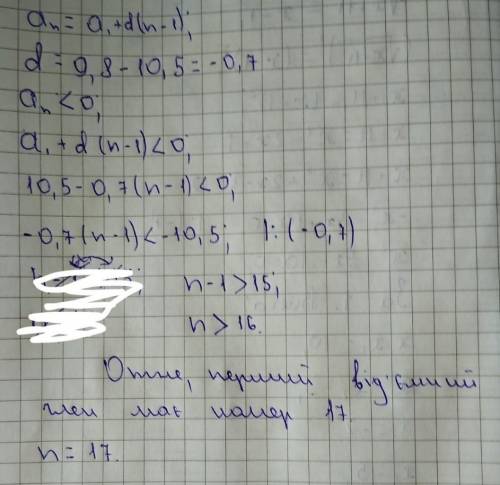 aₙ = a₁+d(n-1);
d = 0,8-10,5 = -0,7
aₙ < 0;
a₁ + d(n-1) < 0;
10,5-0,7(n-1) < 0;
-0,7(n-1) < -10,5; |:(-0,7)
n-1 > 15;
n > 16.
Отже, перший від'ємний
член має номер 17.
n = 17.